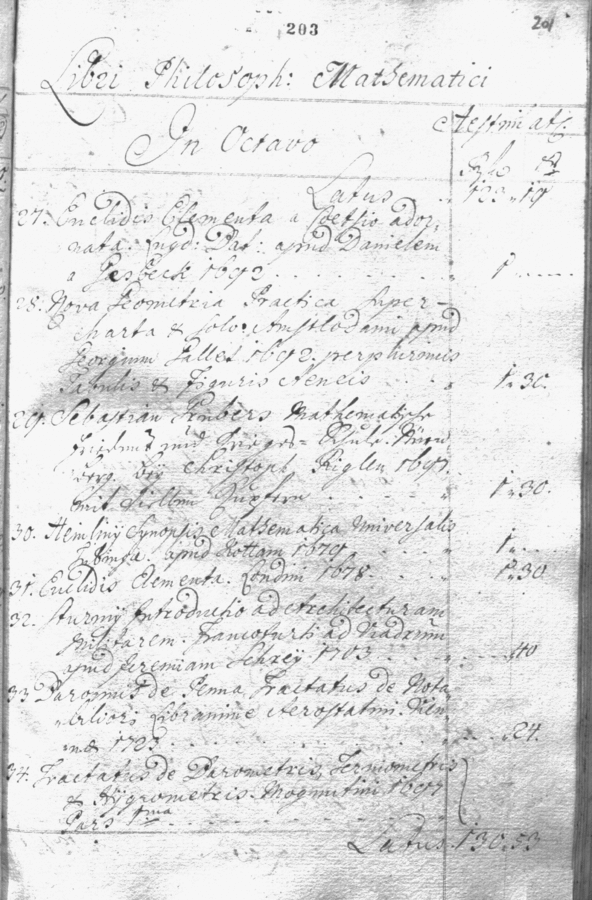 203
201
Libri Philosoph: Mathematici
In Octavo
Aestimat:
Latus 123 19
27. Euclidis Elementa a Coetsio ador-
nata. Lugd: Bat: apud Danielem
a Gesbeck 1692. 1
28. Nova Geometria Practica super
charta & solo. Amstlodami apud
Georgium Gallet 1692. perplurimis
Tabulis & Figuris Aeneis 1. 30.
29. Sebastian Grubers Mathematische
Friedens und Krieges-Schule. Nürn
berg beÿ Christoph Riglen 1697.
mit Kupfern 1. 30.
30. Hemlinÿ Synopsis Mathematica Universalis
Tubingæ apud Cottam 1679. 1.
31. Euclidis Elementa. Londini 1678. 1. 30
32. Sturmÿ Introductio ad Architecturam
Militarem. Francofurti ad Viadrum
apud Jeremiam Schreÿ 1703 40
33 de Penna Tractatus de
Aerostatmi.
1723 24.
34. Tractatus de Barometris, Termometris
& Hygrometris. Moguntini 1697
Pars 1ma
Latus. 130. 53